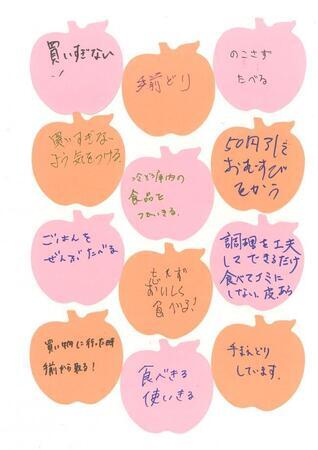 買いすぎない
手前どり
のこさず
たべる
買いすぎない
よう気をつける
冷ぞう庫内の
食品を
つかいきる。
50円引き
おむすび
をかう
ごはんを
ぜんぶたべる
忘れず
おいしく
食べる!
調理を工夫
してできるだけ
食べてゴミに
しない。皮、
買い物に行った時
手前から取る!
食べきる
使いきる
手まえどり
しています。